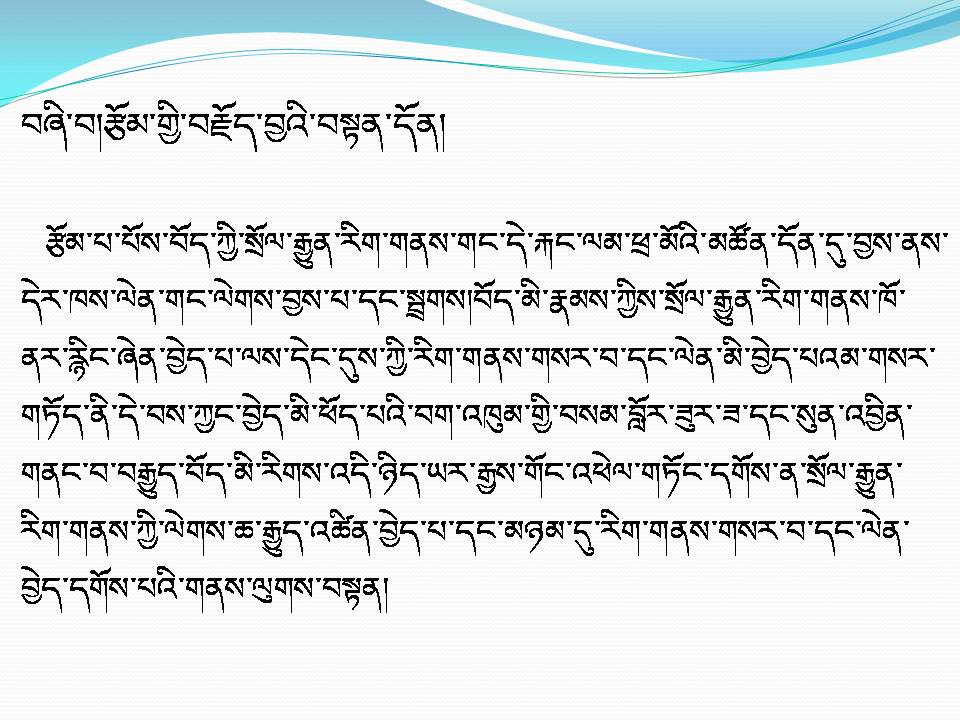 བཞི་བ།རྩོམ་གྱི་བརྗོད་བྱའི་བསྟན་དོན།
རྩོམ་པ་པོས་བོད་ཀྱི་སྲོལ་རྒྱུན་རིག་གནས་གང་དེ་རྐང་ལམ་ཕྲ་མོའི་མཚོན་དོན་དུ་བྱས་ནས་
དེར་ཁས་ལེན་གང་ལེགས་བྱས་པ་དང་སྦྲགས།བོད་མི་རྣམས་ཀྱིས་སྲོལ་རྒྱུན་རིག་གནས་ཁོ་
ནར་རྙིང་ཞེན་བྱེད་པ་ལས་དེང་དུས་ཀྱི་རིག་གནས་གསར་བ་དང་ལེན་མི་བྱེད་པའམ་གསར་
གཏོད་ནི་དེ་བས་ཀྱང་བྱེད་མི་ཕོད་པའི་བག་འཁུམ་གྱི་བསམ་བློར་ཟུར་ཟ་དང་སུན་འབྱིན་
གནང་བ་བརྒྱུད་བོད་མི་རིགས་འདི་ཉིད་ཡར་རྒྱས་གོང་འཕེལ་གཏོང་དགོས་ན་སྲོལ་རྒྱུན་
རིག་གནས་ཀྱི་ལེགས་ཆ་རྒྱུད་འཛིན་བྱེད་པ་དང་མཉམ་དུ་རིག་གནས་གསར་བ་དང་ལེན་
བྱེད་དགོས་པའི་གནས་ལུགས་བསྟན།